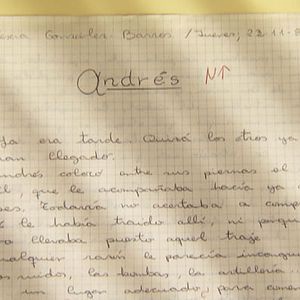 González Barros / Jueves, 22-11-8
Andrés N↑
Ya era tarde. Quizá los otros ya
an llegado.
ndrés colocó entre sus piernas el
l, que le acompañaba hacía ya
ses. Todavía no acertaba a comp
é le había traído allí, ni porqué
o llevaba puesto aquel traje
ualquier razón le parecía incongru
os nudos, las bombas, la artillería
un lugar adecuado, para comen